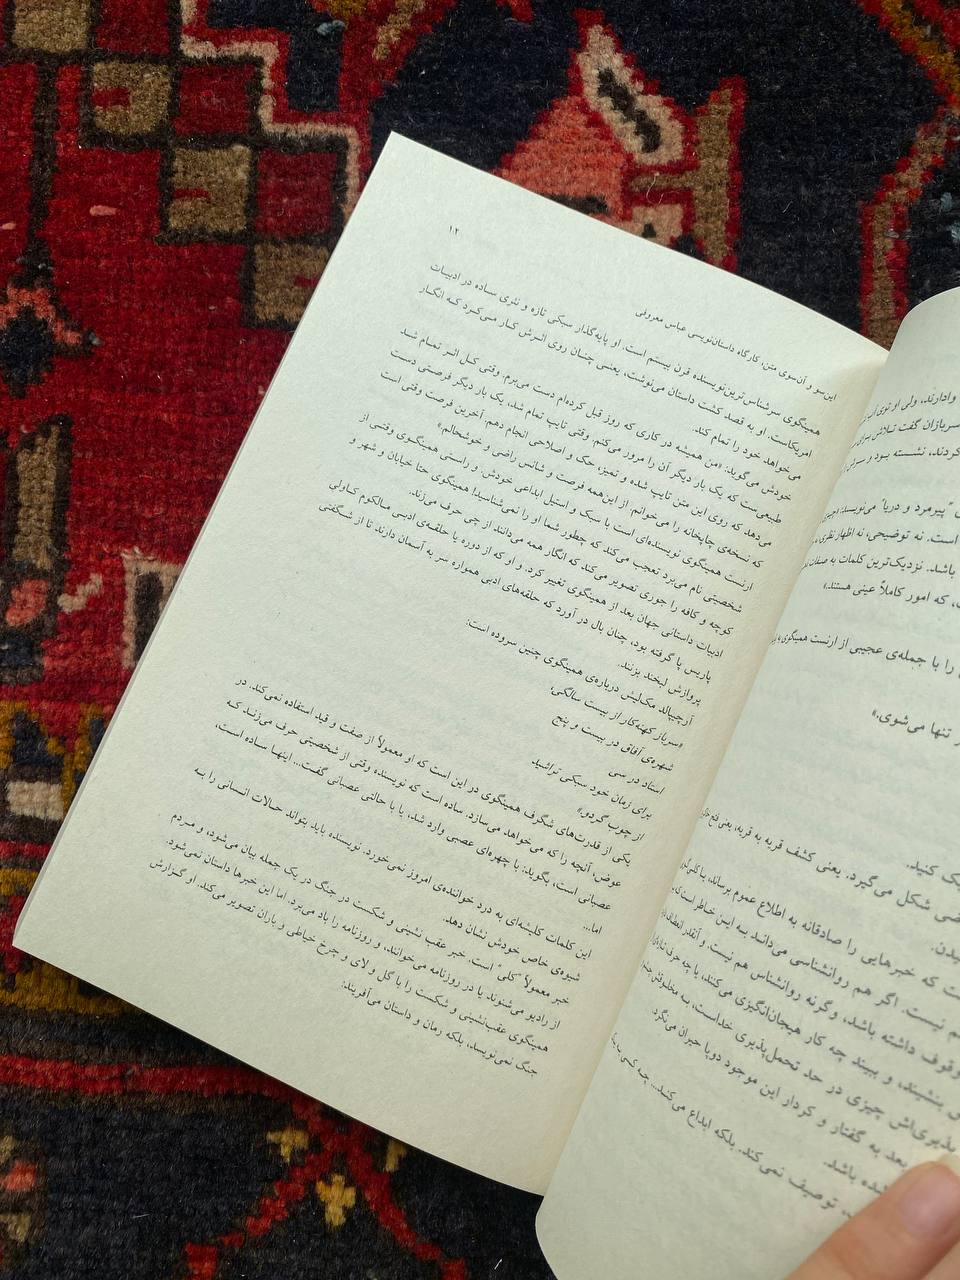 ۱۲
این سو و آن سوی متن، کارگاه داستان‌نویسی عباس معروفی
همینگوی سرشناس‌ترین نویسنده قرن بیستم است. او پایه‌گذار سبکی تازه و نثری ساده در ادبیات
امریکاست. او به قصد کشت داستان می‌نوشت، یعنی چنان روی اثرش کار می‌کرد که انگار
می‌خواهد خود را تمام کند.
خودش می‌گوید: «من همیشه در کاری که روز قبل کرده‌ام دست می‌برم. وقتی کل اثر تمام شد
طبیعی‌ست که یک بار دیگر آن را مرور می‌کنم. وقتی تایپ تمام شد، یک بار دیگر فرصتی دست
می‌دهد که روی این متن تایپ شده و تمیز، حک و اصلاحی انجام دهم. آخرین فرصت وقتی است
که نسخه‌ی چاپخانه را می‌خوانم. از این‌همه فرصت و شانس راضی و خوشحالم.»
ارنست همینگوی نویسنده‌ای است با سبک و استیل ابداعی خودش. و راستی همینگوی وقتی از
شخصیتی نام می‌برد تعجب می‌کند که چطور شما او را نمی‌شناسید! همینگوی حتا خیابان و شهر و
کوچه و کافه را جوری تصویر می‌کند که انگار همه می‌دانند از چی حرف می‌زند.
ادبیات داستانی جهان بعد از همینگوی تغییر کرد. و او که از دوره یا حلقه‌ی ادبی مالکوم کاولی
پاریس پا گرفته بود، چنان بال در آورد که حلقه‌های ادبی همواره سر به آسمان دارند تا از شگفتی
پروازش لبخند بزنند.
آرچیبالد مک‌لیش درباره‌ی همینگوی چنین سروده است:
«سرباز کهنه‌کار از بیست سالگی
شهره‌ی آفاق در بیست و پنج
استاد در سی
برای زمان خود سبکی تراشید
از چوب گردو.»
یکی از قدرت‌های شگرف همینگوی در این است که او معمولاً از صفت و قید استفاده نمی‌کند. در
عوض، آنچه را که می‌خواهد می‌سازد. ساده است که نویسنده وقتی از شخصیتی حرف می‌زند که
عصبانی است، بگوید: با چهره‌ای عصبی وارد شد، یا با حالتی عصبانی گفت... اینها ساده است،
اما...
این کلمات کلیشه‌ای به درد خواننده‌ی امروز نمی‌خورد. نویسنده باید بتواند حالات انسانی را به
شیوه‌ی خاص خودش نشان دهد.
خبر معمولاً "کلی" است. خبر عقب نشینی و شکست در جنگ در یک جمله بیان می‌شود، و مردم
از رادیو می‌شنوند یا در روزنامه می‌خوانند، و روزنامه را باد می‌برد. اما این خبرها داستان نمی‌شود.
همینگوی عقب‌نشینی و شکست را با گل و لای و چرخ خیاطی و باران تصویر می‌کند. او گزارش
جنگ نمی‌نویسد، بلکه رمان و داستان می‌آفریند:
وادارند، ولی او توی
سربازان گفت تلاش برای
کردند، نشسته بود و
"پیرمرد و دریا" می‌نویسد:
است. نه توضیحی، نه اظهار نظری
باشد. نزدیک‌ترین کلمات به صفات
که امور کاملاً عینی هستند.»
را با جمله‌ی عجیبی از ارنست همینگوی به
تنها می‌شوی.»
یک کنید.
شکل می‌گیرد. یعنی کشف قریه به قریه، یعنی فتح
که خبرهایی را صادقانه به اطلاع عموم برساند، یا
نیست. اگر هم روانشناسی می‌داند به این خاطر است
وقوف داشته باشد، وگرنه روانشناس هم نیست. و آنقدر
بنشیند، و ببیند چه کار هیجان‌انگیزی می‌کنند، یا چه حرف
پذیری‌اش چیزی در حد تحمل‌پذیری خداست، به
بعد به گفتار و کردار این موجود دوپا حیران می‌نگرد.
شده باشد.
توصیف نمی‌کند. بلکه ابداع می‌کند... چه کسی